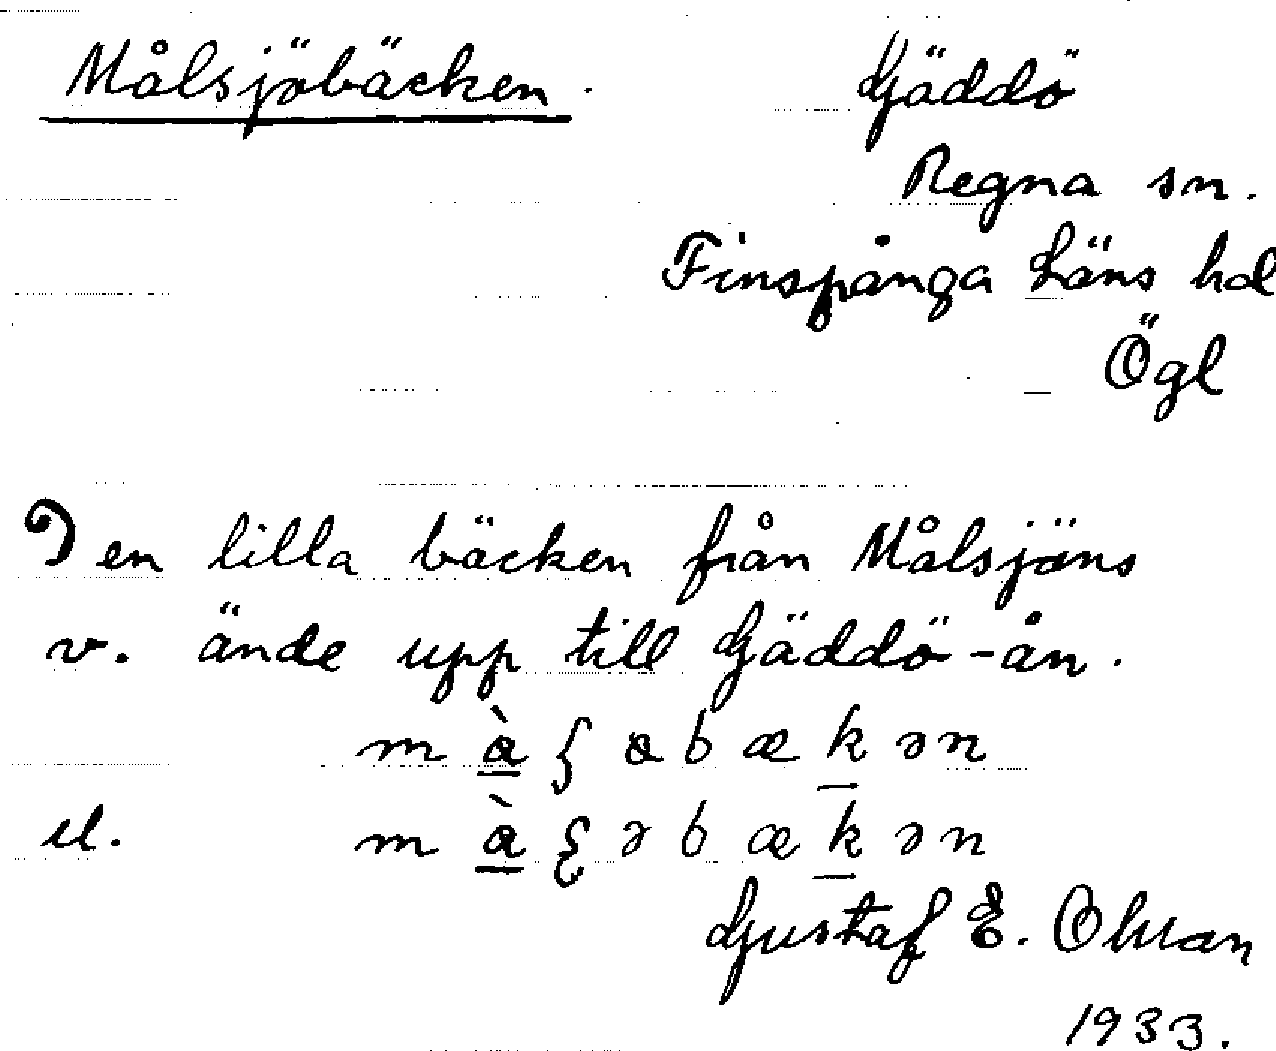 Målsjöbäcken.
Gäddö
Regna sn.
Finspånga Läns hd
Ögl
Den lilla bäcken från Målsjöns
v. ände upp till Gäddö-ån.
el.
Gustaf E.
1933.